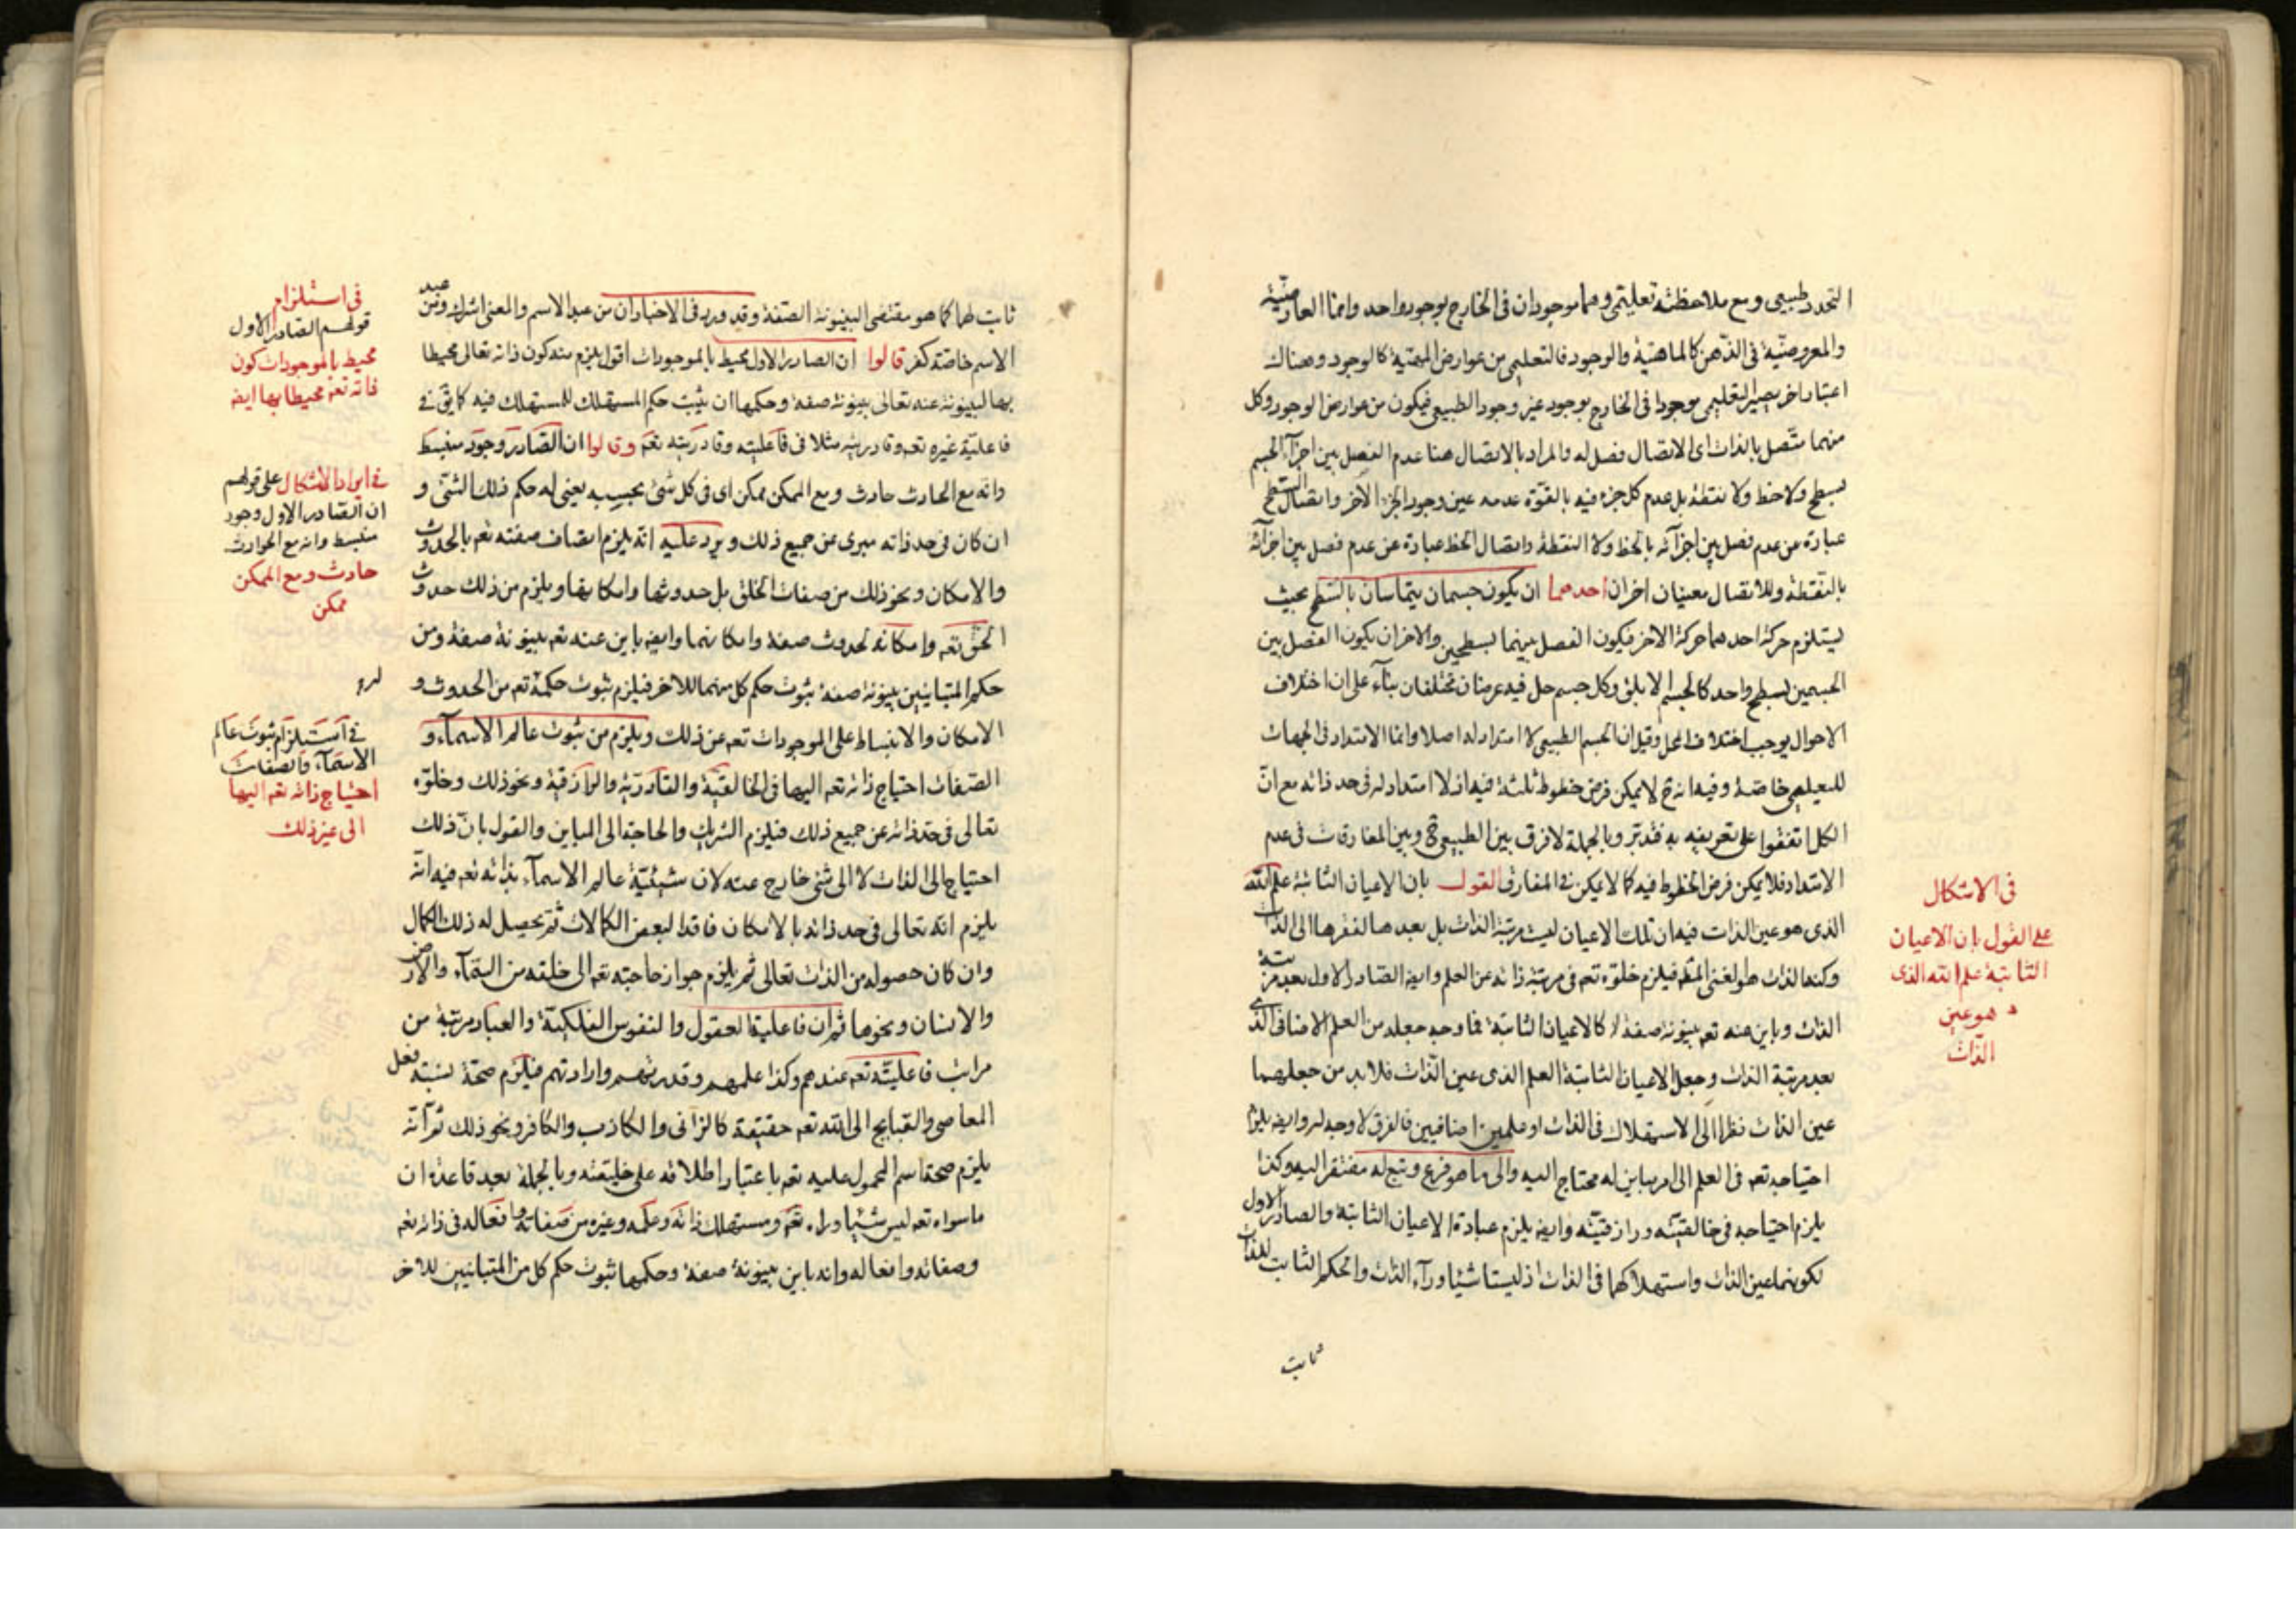 التحدد طبيعي ومع ملاحظته تعليمي وهما موجودان فى الخارج بوجود واحد وانما العارضية
والمعروضية فى الذهن كالماهية والوجود فالتعليمي من عوارض المهية كالوجود وهناك
اعتبار اخر يصير التعليمي موجودا فى الخارج بوجود غير وجود الطبيعي فيكون من عوارض الوجود وكل
منهما متصل بالذات اى الاتصال فصل له والمراد بالاتصال هنا عدم الفصل بين اجزآء الجسم
بسطح ولا خط ولا نقطة بل عدم كل جزء فيه بالقوة عدمه عين وجود الجزء الآخر واتصال السطح
عبارة من عدم فصل بين اجزآئه بالخط ولا النقطة واتصال الخط عبارة عن عدم فصل بين اجزآئه
بالنقطة وللاتصال معنيان اخران احدهما ان يكون جسمان يتماسان بالسطح بحيث
يستلزم حركة احدهما حركة الاخر فيكون الفصل بينهما بسطحين والاخر ان يكون الفصل بين
الجسمين بسطح واحد كالجسم الابلق وكل جسم حل فيه عرضان مختلفان بنآء على ان اختلاف
الاحوال يوجب اختلاف المحل وقيل ان الجسم الطبيعى لا امتداد له اصلا وانما الامتداد فى الجهات
للتعليمي خاصة وفيه انه ح لا يمكن فرض خطوط ثلثة فيه اذ لا امتداد له فى حد ذاته مع انّ
الكل اتفقوا على تعريفه به فتدبر وبالجملة لا فرق بين الطبيعي ح وبين المفارقات فى عدم
الامتداد فلا يمكن فرض الخطوط فيه كما لا يمكن فى المفارق القول بان الاعيان الثابتة علم الله
الذى هو عين الذات فيه ان تلك الاعيان ليست مرتبة الذات بل بعدها لفقرها الى الذات
وكنه الذات هو الغنى المطلق فيلزم خلوّه تعه فى مرتبة ذاته عن العلم وايضا الصادر الاول بعد مرتبة
الذات وباين عنه تعه بينونة صفة كالاعيان الثابتة فما وجه جعله من العلم الاضافى الذى
بعد مرتبة الذات وجعل الاعيان الثابتة العلم الذى عين الذات فلا بد من جعلهما
عين الذات نظرا الى الاستهلاك فى الذات او علمين اضافيين فالفرق لا وجه له وايضا يلزم
احتياجه تعه فى العلم الى امر مباين له محتاج اليه والى ما هو فرع وتبع له مفتقر اليه وكذا
يلزم احتياجه فى خالقيته ورازقيته وايضا يلزم عبادة الاعيان الثابتة والصادر الاول
لكونهما عين الذات واستهلاكهما فى الذات اذ ليستا شيئا ورآء الذات والحكم الثابت للذات
ثابت
فى الاشكال
على القول بان الاعيان
الثابتة علم الله الذى
هو عين
الذات
ثابت لها كما هو مقتضى البينونة الصفة وقد ورد فى الاخبار ان من عبد الاسم والمعنى اشرك ومن عبد
الاسم خاصة كفر قالوا ان الصادر الاول محيط بالموجودات اقول يلزم منه كون ذاته تعالى محيطا
بها لبينونة عنه تعالى بينونة صفة وحكمها ان يثبت حكم المستهلك للمستهلك فيه كما يقى فى
فاعلية غيره تعه وقادريته مثلا فى فاعليته وقادريته تعه وقالوا ان الصادر وجود منبسط
وانه مع الحادث حادث ومع الممكن ممكن اى فى كل شئ بحسبه يعنى له حكم ذلك الشئ و
ان كان فى حد ذاته مبرى عن جميع ذلك ويرد عليه انه يلزم اتصاف صفته تعه بالحدوث
والامكان ونحو ذلك من صفات الخلق بل حدوثها وامكانها ويلزم من ذلك حدوث
الحق تعه وامكانه لحدوث صفة وامكانهما وايضا باين عنه تعه بينونة صفة ومن
حكم المتباينين بينونة صفة ثبوت حكم كل منهما للاخر فيلزم ثبوت حكمه تعه من الحدوث و
الامكان والانبساط على الموجودات تعه عن ذلك ويلزم من ثبوت عالم الاسمآء و
الصفات احتياج ذاته تعه اليها فى الخالقية والقادرية والرازقية ونحو ذلك وخلوّه
تعالى فى حد ذاته عن جميع ذلك فيلزم الشريك والحاجة الى المباين والقول بانّ ذلك
احتياج الى الذات لا الى شئ خارج عنه لان شيئية عالم الاسمآء بذاته تعه فيه انه
يلزم انه تعالى فى حد ذاته بالامكان فاقدا لبعض الكمالات ثم يحصل له ذلك الكمال
وان كان حصوله من الذات تعالى ثم يلزم جواز حاجته تعه الى خلقه من السمآء والارض
والانسان ونحوها ثم ان فاعلية العقول والنفوس الفلكية والعباد مرتبة من
مراتب فاعليته تعه عندهم وكذا علمهم وقدرتهم وارادتهم فيلزم صحة نسبة فعل
المعاصى والقبايح الى الله تعه حقيقة كالزانى والكاذب والكافر ونحو ذلك ثم انه
يلزم صحة اسم المحمول عليه تعه باعتبار اطلاقه على خليقته وبالجملة بعد قاعدة ان
ما سواه تعه ليس شيئا وراء تعه ومستهلك ذاته وعلمه وغيره من صفاته وافعاله فى ذاته تعه
وصفاته وافعاله وانه باين بينونة صفة وحكمها ثبوت حكم كل من المتباينين للاخر
فى استلزام
قولهم الصادر الاول
محيط بالموجودات كون
ذاته تعه محيطا بها ايضا
فى ايراد الاشكال على قولهم
ان الصادر الاول وجود
منبسط وانه مع الحوادث
حادث ومع الممكن
ممكن
فى استلزام ثبوت عالم
الاسمآء والصفات
احتياج ذاته تعه اليها
الى غير ذلك